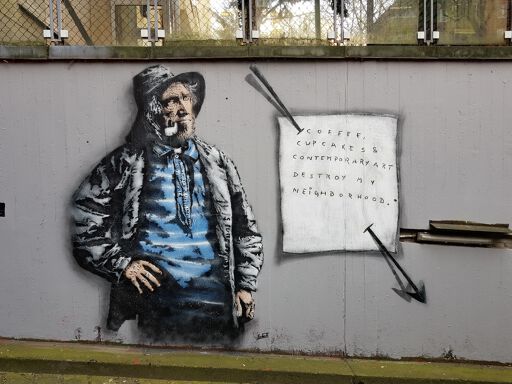 COFFEE,
CUPCAKES &
CONTEMPORARY ART
DESTROY MY
NEIGHBORHOOD.